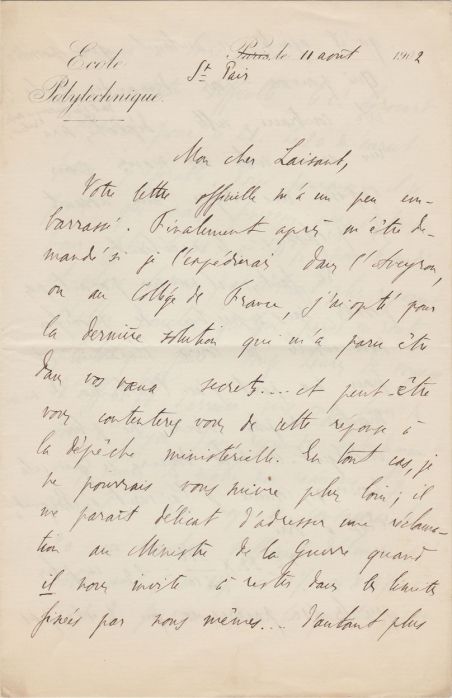 Ecole
Polytechnique.
Paris, le 11 août 1902
St Pair
Mon cher Laisant,
Votre lettre officielle m'a un peu em-
barrassé. Finalement après m'être de-
mandé si je l'expédierais dans l'Aveyron,
ou au Collège de France, j'ai opté pour
la dernière solution qui m'a paru être
dans vos vœux secrets.... et peut-être
vous contenterez vous de cette réponse à
la dépêche ministérielle. En tout cas, je
ne pourrais vous suivre plus loin; il
me parait délicat d'adresser une réclama-
tion au Ministre de la Guerre quand
il nous invite à rester dans les limites
fixées par nous mêmes.... d'autant plus